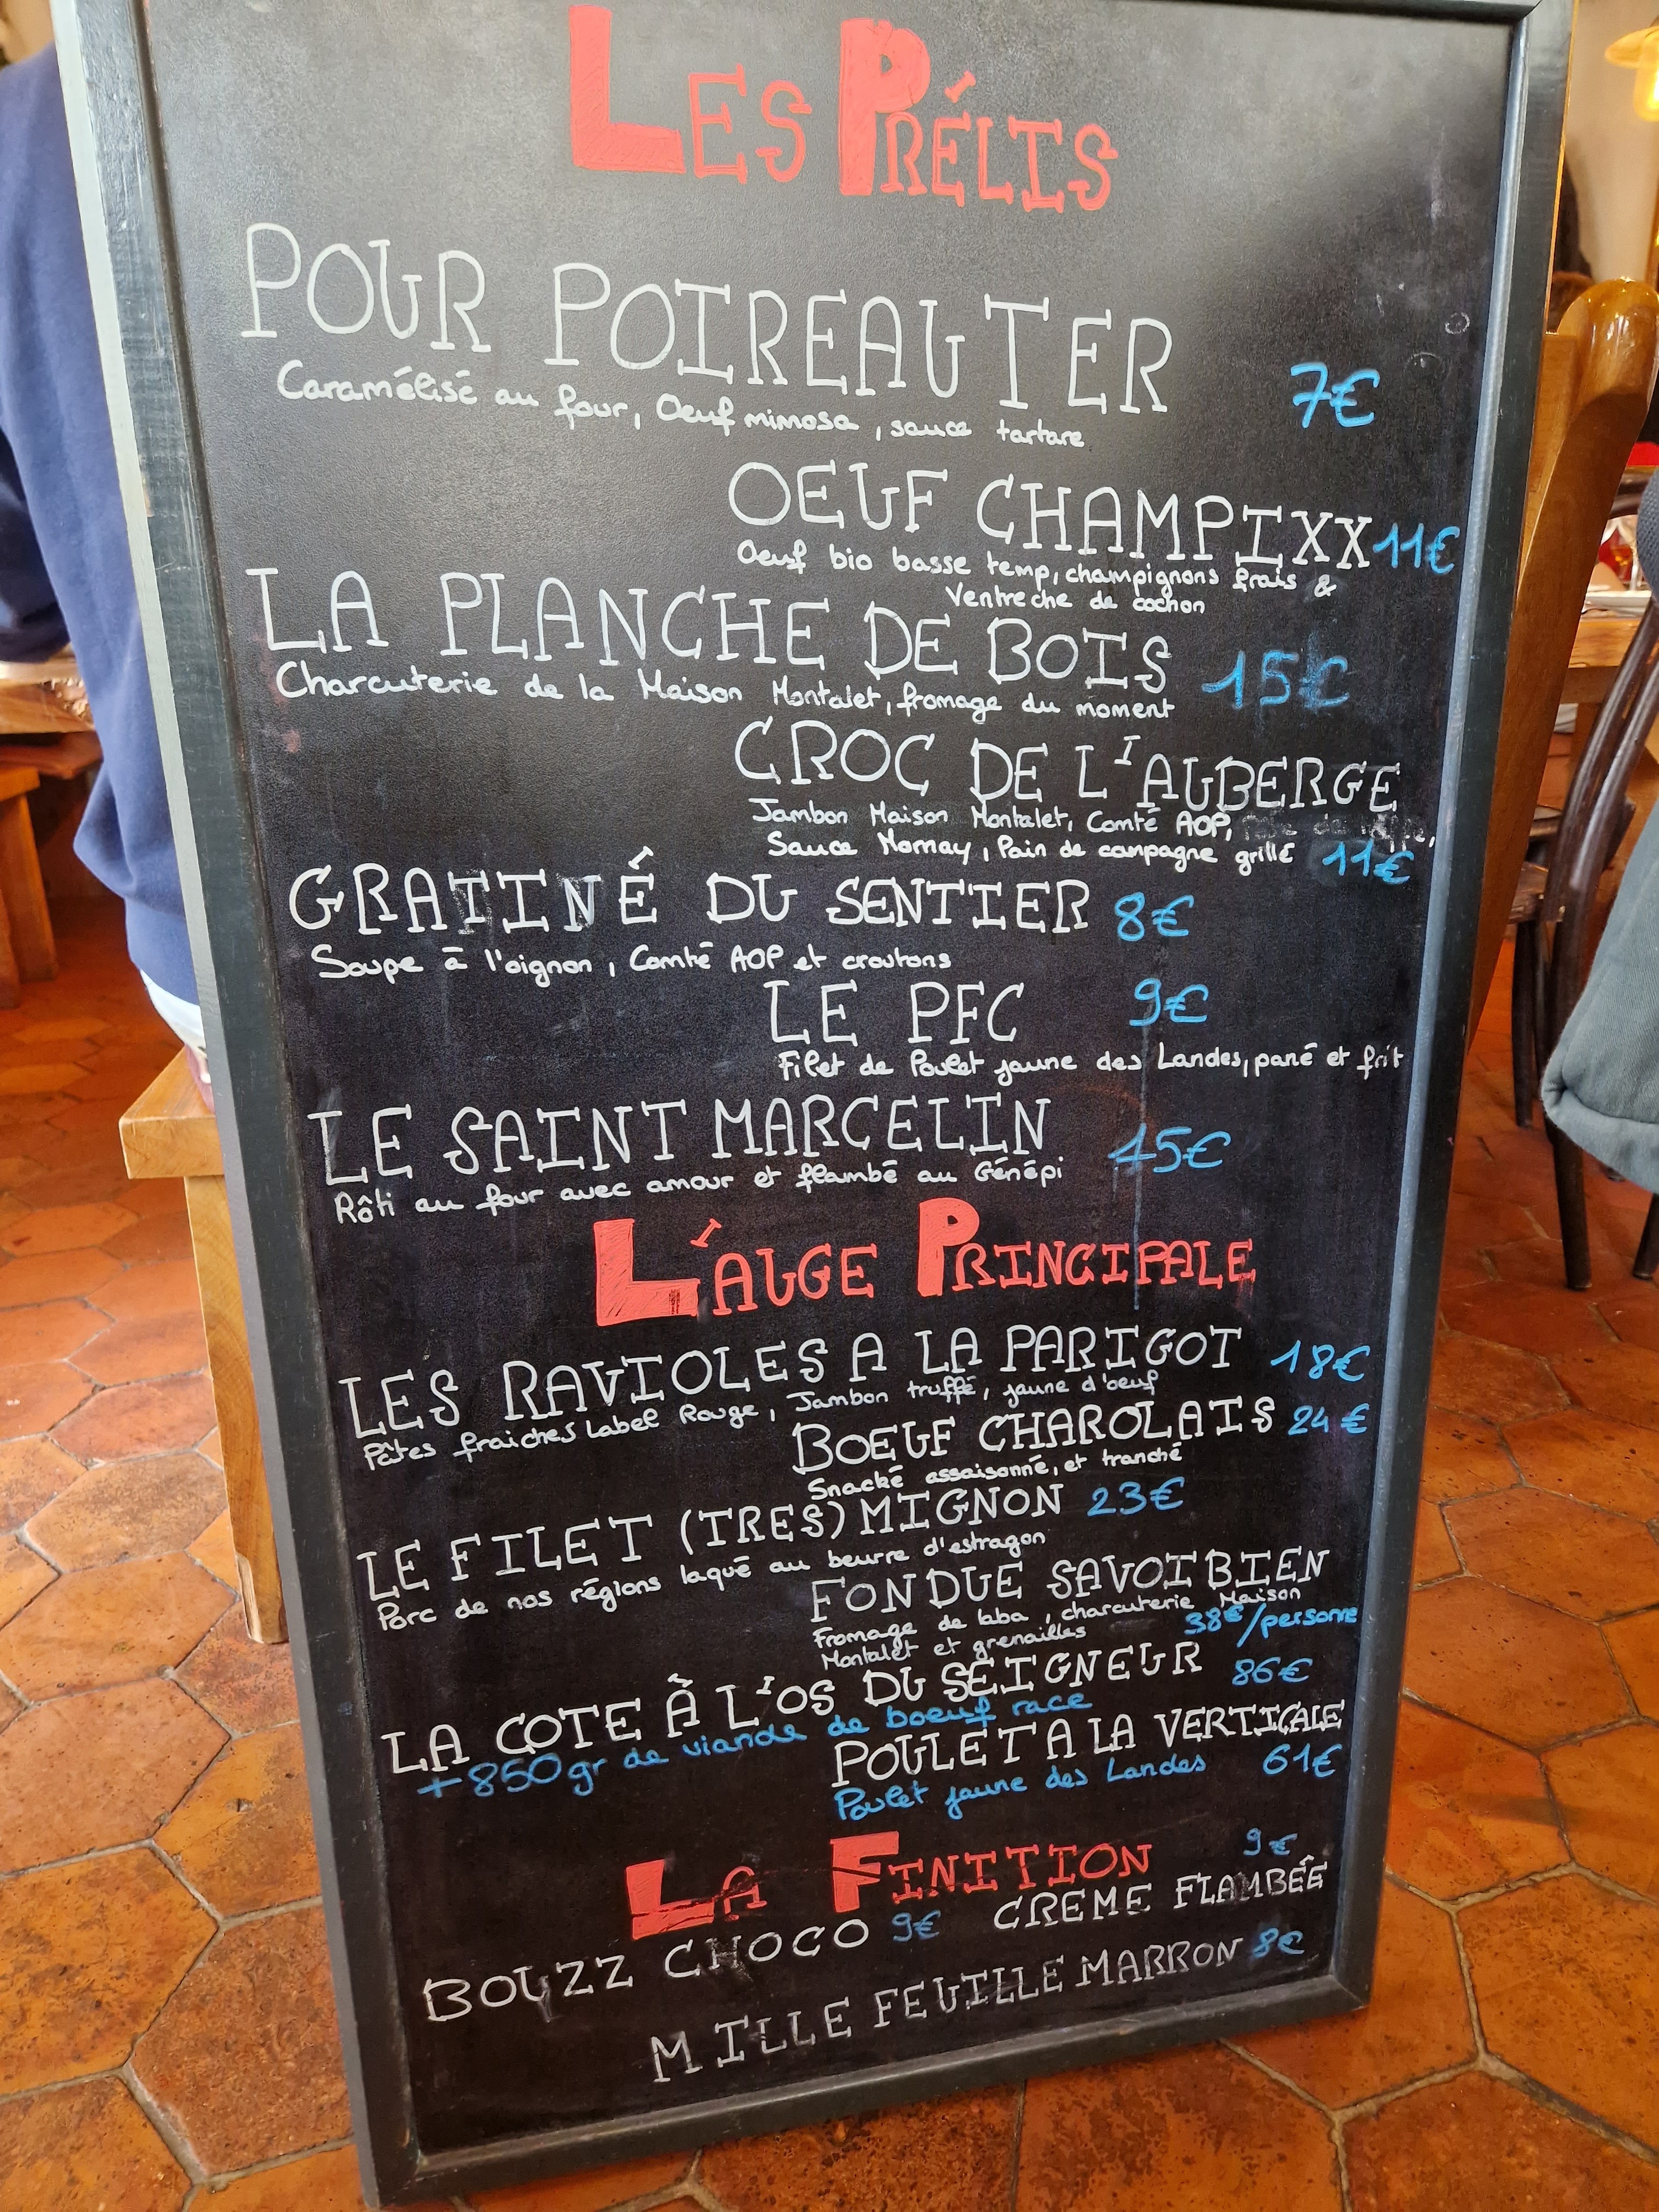 LES PRÉLIS
POUR POIREAUTER
7€
Caramélisé au four, Oeuf mimosa, sauce tartare
OEUF CHAMPIXX 11€
Oeuf bio basse temp, champignons frais &
Ventreche de cochon
LA PLANCHE DE BOIS 15€
Charcuterie de la Maison Montalet, fromage du moment
CROC DE L'AUBERGE
Jambon Maison Montalet, Comté AOP,
Sauce Mornay, Pain de campagne grillé 11€
GRATINÉ DU SENTIER 8€
Soupe à l'oignon, Comté AOP et croutons
LE PFC 9€
Filet de Poulet jaune des Landes, pané et frit
LE SAINT MARCELIN 15€
Rôti au four avec amour et flambé au Génépi
L'AUGE PRINCIPALE
LES RAVIOLES A LA PARIGOT 18€
Pâtes fraiches Label Rouge, Jambon truffé, jaune d'oeuf
BOEUF CHAROLAIS 24€
Snacké assaisonné, et tranché
LE FILET (TRES) MIGNON 23€
Porc de nos régions laqué au beurre d'estragon
FONDUE SAVOIBIEN
Fromage de laba, charcuterie Maison
Montalet et grenailles 38€/personne
LA COTE À L'OS DU SEIGNEUR 86€
+850gr de viande de boeuf race
POULET A LA VERTICALE
Poulet jaune des Landes 61€
LA FINITION
9€
BOUZZ CHOCO 9€ CREME FLAMBÉE
MILLE FEUILLE MARRON 8€